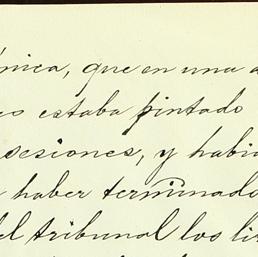 única, que en una
estaba pintado
sesiones, y habia
haber terminado
del tribunal los